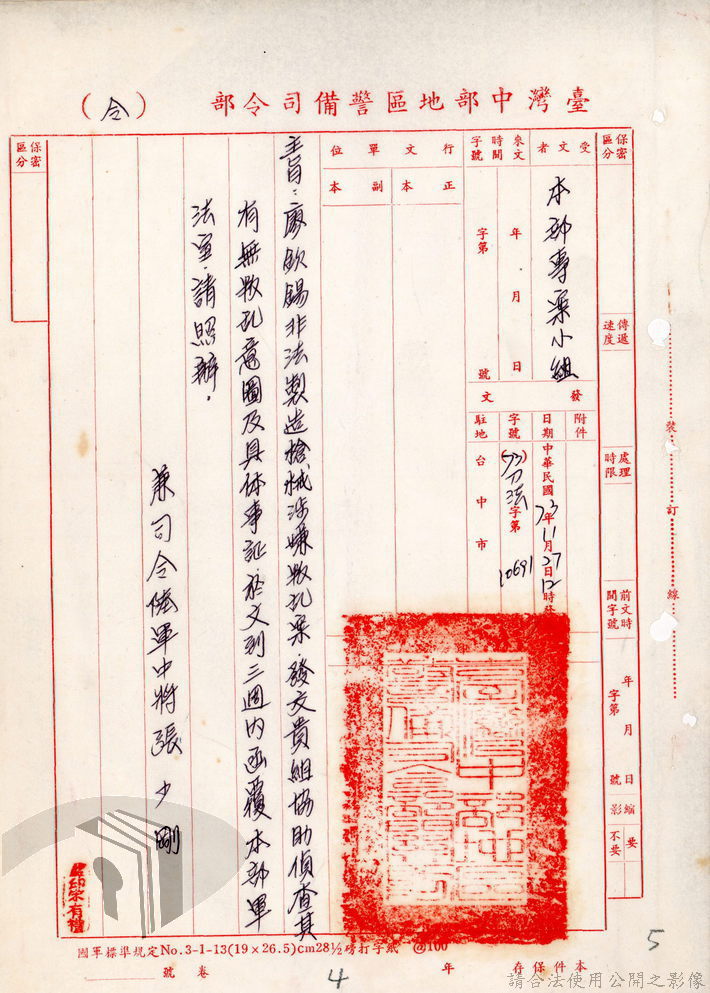 臺灣中部地區警備司令部（令）
保密區分
受文者
本部專案小組
來文時間字號
年 月 日
字第 號
行文單位
正本
副本
保密區分
傳遞速度
處理時限
前文時間字號
年 月 日
字第 號
縮影
要
不要
發文
附件
日期
中華民國73年11月27日12時發
字號
(73)法字第10691
駐地
台中市
主旨：廖欽錫非法製造槍械涉嫌叛乱案，發交貴組協助偵查其
有無叛乱意圖及具体事証，於文到三週內函覆本部軍
法室，請照辦。
兼司令陸軍中將張少剛
裝 訂 線
國軍標準規定No.3-1-13(19×26.5)cm28½磅打字紙 @100
本件保存 年
卷 號
4
5
請合法使用公開之影像